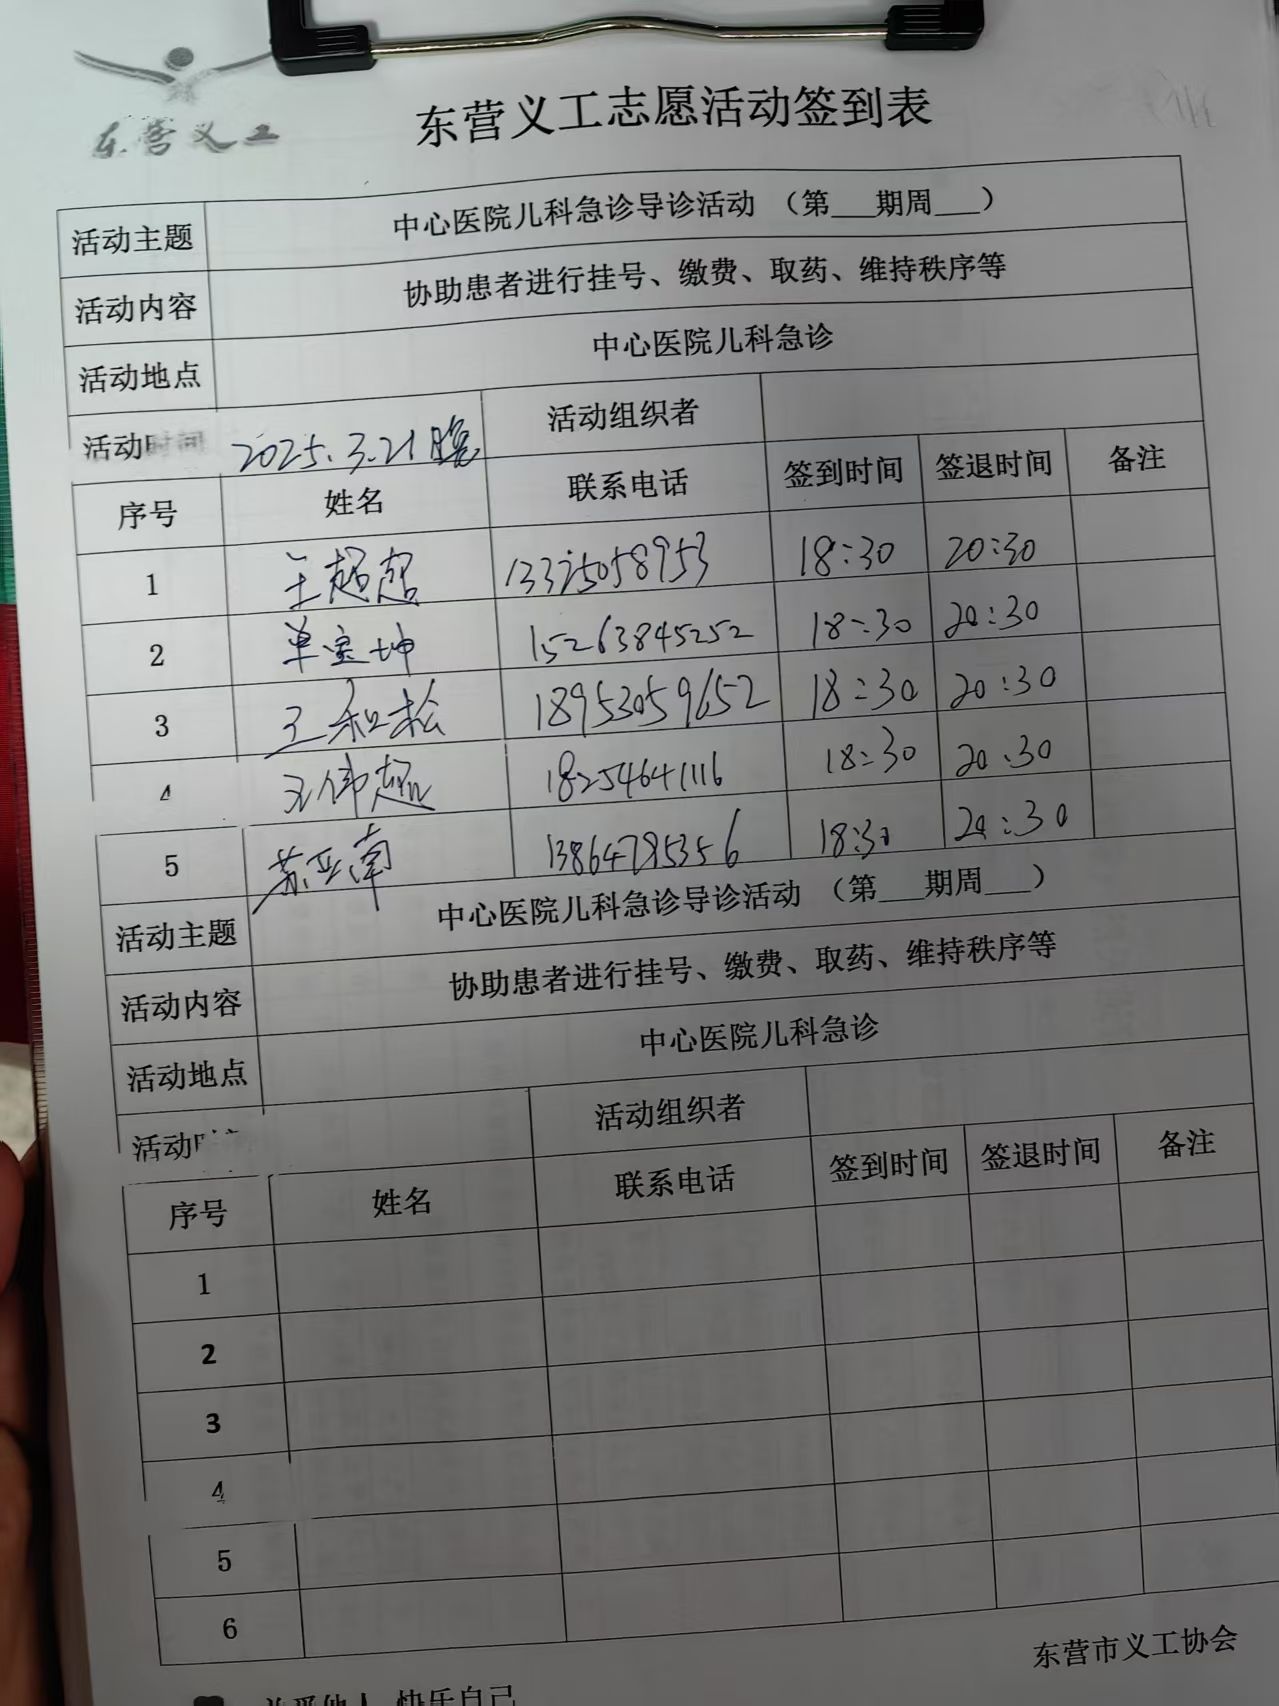 东营义工
东营义工志愿活动签到表
活动主题 中心医院儿科急诊导诊活动 （第___期周___）
活动内容 协助患者进行挂号、缴费、取药、维持秩序等
活动地点 中心医院儿科急诊
活动时间 2025.3.21晚 活动组织者
序号 姓名 联系电话 签到时间 签退时间 备注
1 王超超 18:30 20:30
2 单宝坤 15263845252 18:30 20:30
3 王和松 18953059652 18:30 20:30
4 王伟超 18254641116 18:30 20:30
5 苏亚南 13864785356 18:30 20:30
活动主题 中心医院儿科急诊导诊活动 （第___期周___）
活动内容 协助患者进行挂号、缴费、取药、维持秩序等
活动地点 中心医院儿科急诊
活动 活动组织者
序号 姓名 联系电话 签到时间 签退时间 备注
1
2
3
4
5
6
东营市义工协会
他人 快乐自己